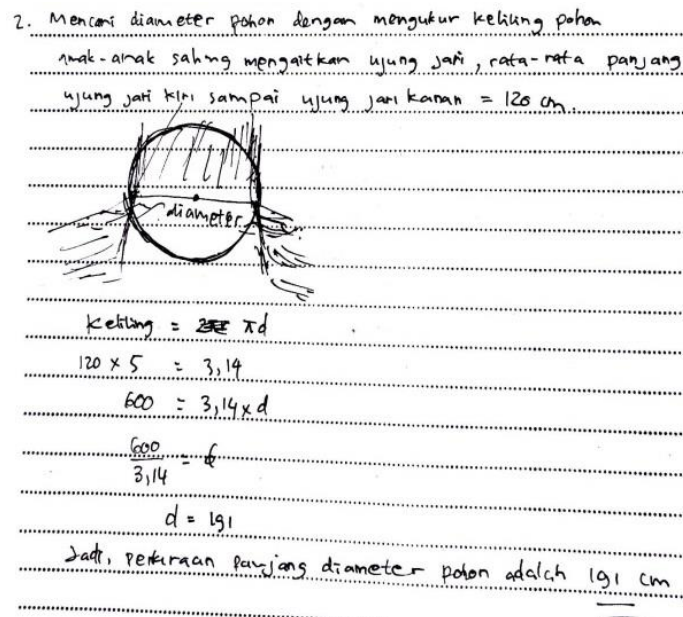 2. Mencari diameter pohon dengan mengukur keliling pohon
Anak-anak saling mengaitkan ujung jari, rata-rata panjang
ujung jari kiri sampai ujung jari kanan = 120 cm.
diameter
Keliling = πd
120 x 5 = 3,14
600 = 3,14 x d
600
3,14 = d
d = 191
Jadi, perkiraan panjang diameter pohon adalah 191 cm